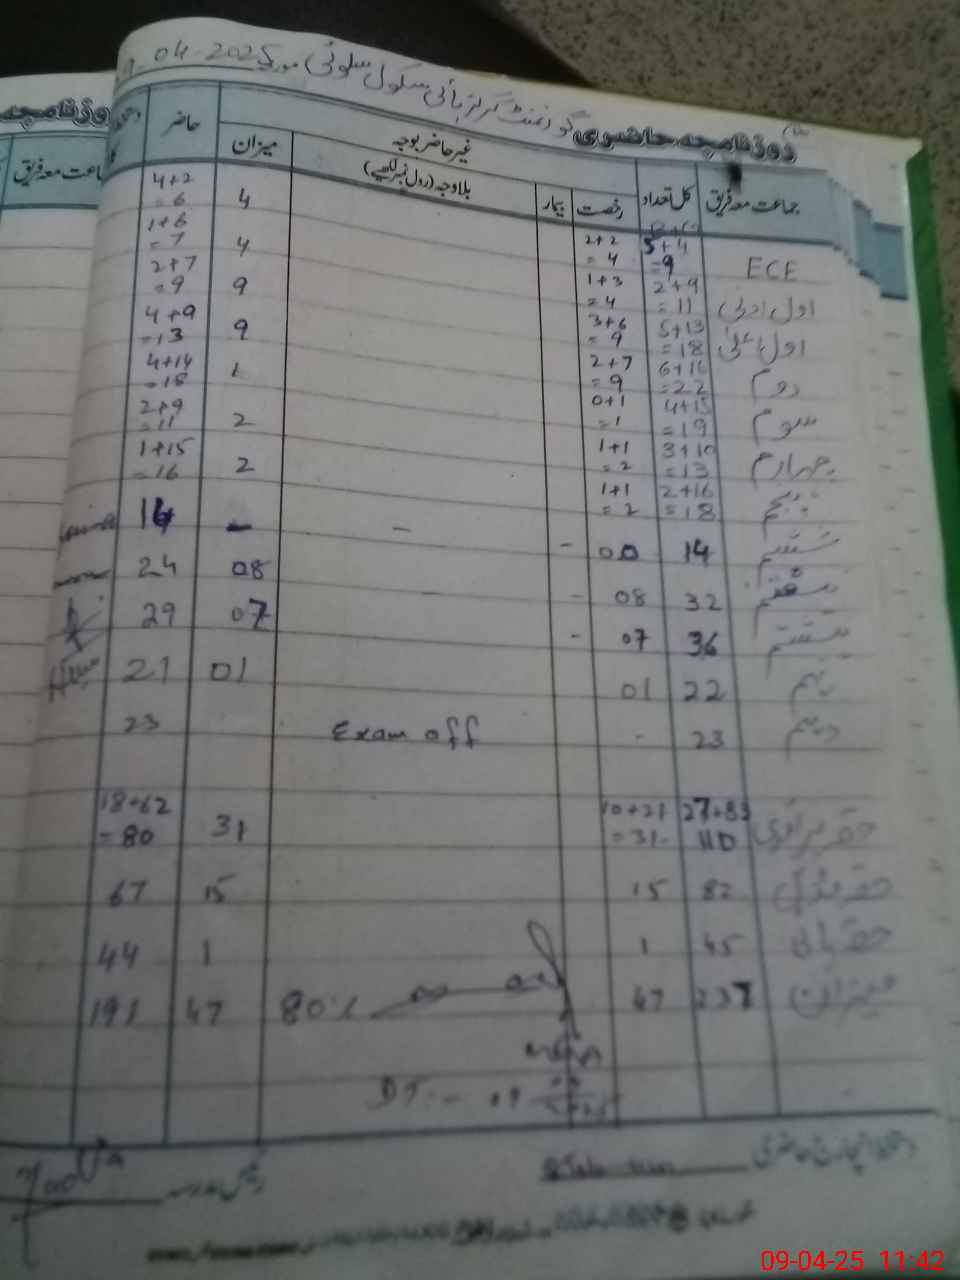 گورنمنٹ گرلز ہائی سکول سلوئی مورخہ 9-04-2025
روزنامچہ حاضری
جماعت معہ فریق کل تعداد غیر حاضر بوجہ حاضر
رخصت بیمار بلاوجہ (رول نمبر لکھیے) میزان
ECE 5+4 =9 2+2 =4 4 4+2 =6
اول ادنیٰ 2+9 =11 1+3 =4 4 1+6 =7
اول اعلیٰ 5+13 =18 3+6 =9 9 2+7 =9
دوم 6+16 =22 2+7 =9 9 4+9 =13
سوم 4+15 =19 0+1 =1 1 4+14 =18
چہارم 3+10 =13 1+1 =2 2 2+9 =11
پنجم 2+16 =18 1+1 =2 2 1+15 =16
ششم 14 00 - - - 14
ہفتم 32 08 - - 08 24
ہشتم 36 07 - 07 29
نہم 22 01 01 21
دہم 23 - Exam off 23
حصہ پرائمری 27+83 110 10+21 =31 31 18+62 =80
حصہ مڈل 82 15 15 67
حصہ ہائی 45 1 1 44
میزان 237 47 80% 47 191
دستخط انچارج حاضری
رئیس مدرسہ
روزنامچہ
جماعت معہ فریق
09-04-25 11:42